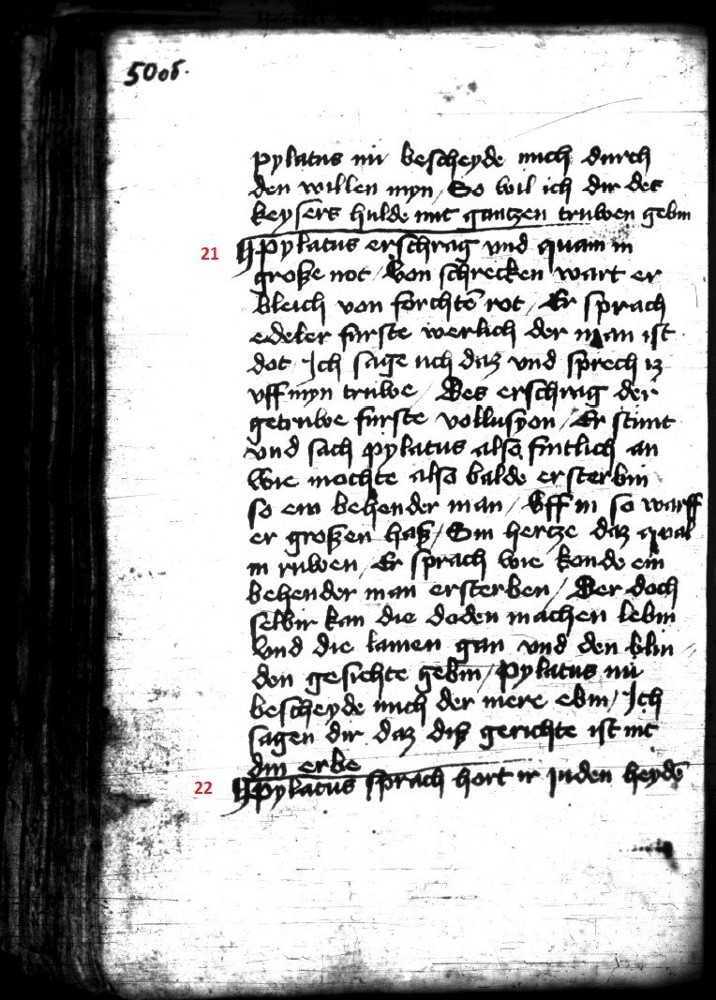 500b.
pylatus nu bescheyde mich durch
den willen myn / So wil ich dir des
keysers hulde mit gantzen truwen gebin
21 ¶ Pylatus erschrag vnd quam in
große not / Von schrecken wart er
bleich von forchte rot / Er sprach
edeler furste werlich der man ist
dot Ich sage uch daz vnd sprech iz
vff myn truwe / Des erschrag der
getruwe furste vollusyon / Er stunt
vnd sach pylatus also fintlich an
Wie mochte also balde ersterbin
so ein behender man / Vff in so warff
er großen haß / Sin hertze daz qwal
in ruwen / Er sprach wie konde ein
behender man ersterben / Der doch
selbir kan die doden machen lebin
Vnd die lamen gan vnd den blin
den gesichte gebin / Pylatus nu
bescheyde mich der mere ebin / Ich
sagen dir daz diß gerichte ist nit
din erbe
22 ¶ Pylatus sprach hort ir juden heydē